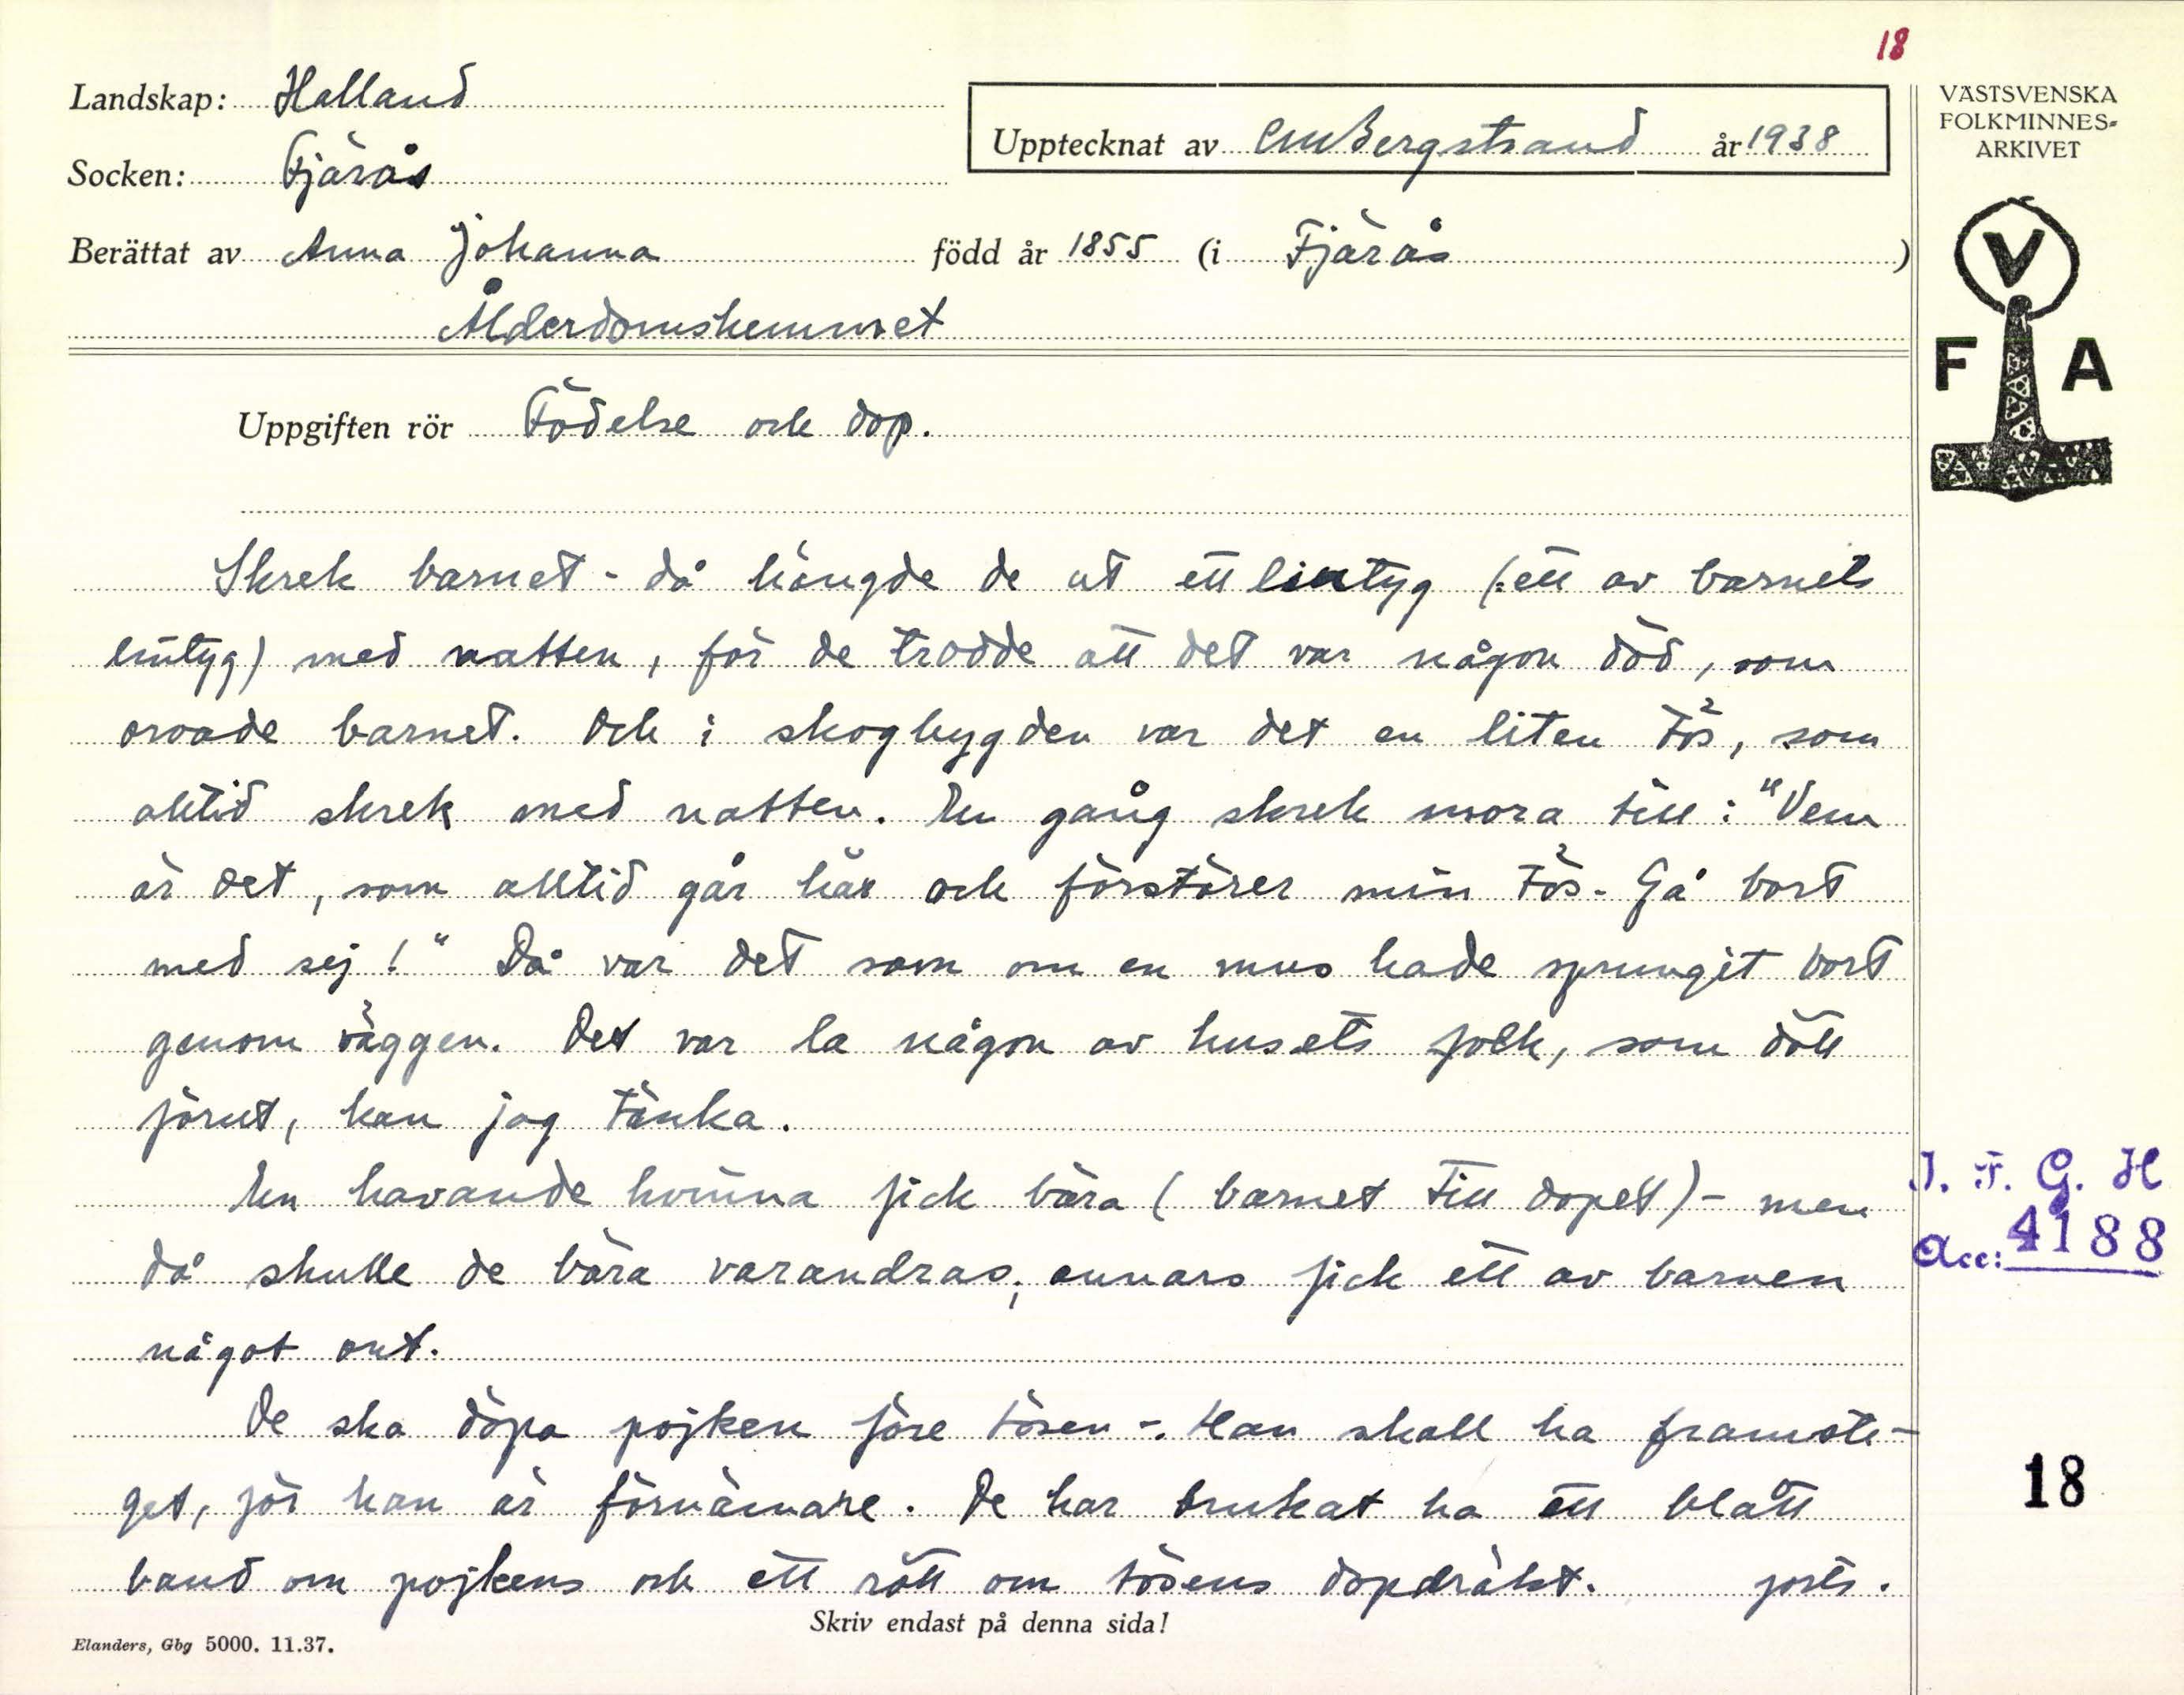 18
Landskap: Halland
Upptecknat av CM Bergstrand år 1938
VÄSTSVENSKA
FOLKMINNES-
ARKIVET
Socken: Fjärås
Berättat av Anna Johanna född år 1855 (i Fjärås )
Ålderdomshemmet
V
F A
Uppgiften rör Födelse och dop.
Skrek barnet - då hängde de ut ett lintyg (: ett av barnets
lintyg) med natten, för de trodde att det var någon död, som
oroade barnet. Och i skogbygden var det en liten tös, som
alltid skrek med natten. En gång skrek mora till: "Vem
är det, som alltid går här och förstörer min tös - Gå bort
med sej!" Då var det som om en mus hade sprungit bort
genom väggen. Det var la någon av husets folk, som dött
förut, kan jag tänka.
En havande kvinna fick bära (barnet till dopet) - men
då skulle de bära varandras, annars fick ett av barnen
något ont.
De ska döpa pojken före tösen -. Han skall ha framste-
get, för han är förnämare. De har brukat ha ett blått
band om pojkens och ett rött om tösens dopdräkt. forts.
I. F. G. H
Acc: 4188
18
Skriv endast på denna sida!
Elanders, Gbg 5000. 11.37.